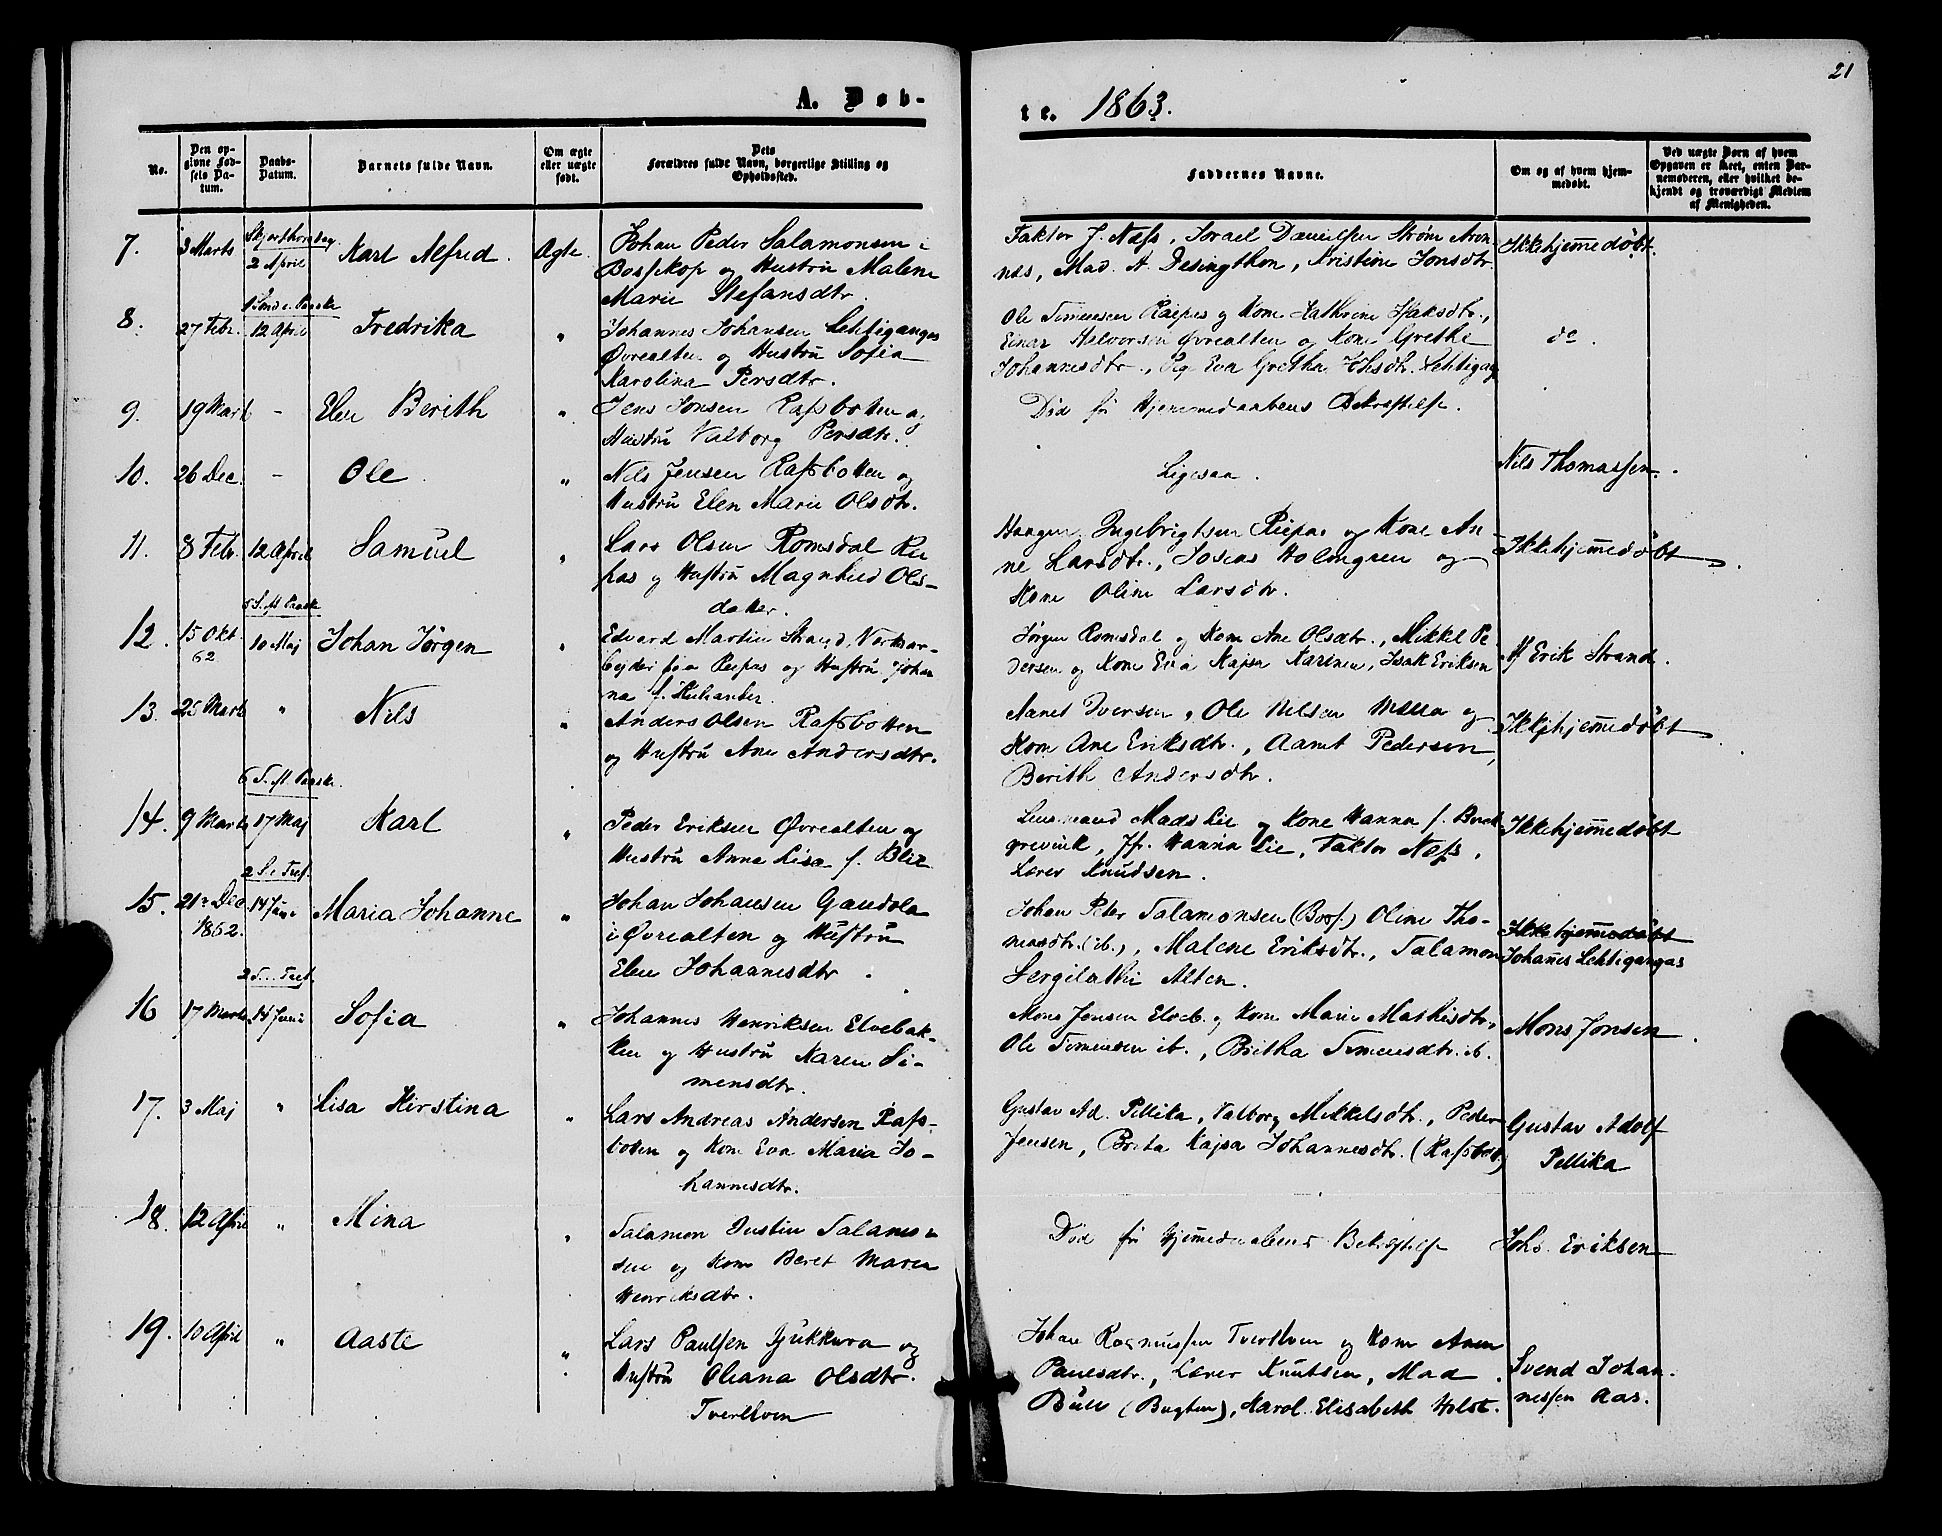 21
A. Døb-
te. 1863.
No.
Den op-
givne Fød-
sels Da-
tum.
Daabs-
Datum.
Barnets fulde Navn.
Om ægte
eller uægte
født.
Dets
Forældres fulde Navn, borgerlige Stilling og
Opholdssted.
Faddernes Navne.
Om og af hvem hjem-
medøbt.
Ved uægte Børn af hvem
Opgaven er skeet, enten Bar-
nemoderen, eller hvilket be-
kjendt og troværdigt Medlem
af Menigheden.
7. 3 Marts Skjærthorsdag 2 April Karl Alfred. Ægte.
Johan Peder Salamonsen i
Bosskop og Hustru Malene
Marie Stefansdtr.
Faktor J. Næss, Israel Danielsen Strøm Aron-
næs, Mad. A. Desingthon, Kristine Jonsdtr.
Ikkehjemmedøbt.
8. 27 Febr. 1 Sønd e. Paaske 12 April Fredrika "
Johannes Johansen Lehtigangas
Øvrealten og Hustru Sofia
Karolina Persdtr.
Ole Simensen Raipas og Kone Kathrine Isaksdtr.,
Einar Halvorsen Øvrealten og Kone Grethe
Johannesdtr., Pig. Eva Gretha Johsdtr. Lehtigag
do.
9. 19 Mart - Elen Berith "
Jens Jonsen Rafsbotten og
Hustru Valborg Persdtr.
Død før Hjemmedaabens Bekræftelse.
10. 26 Dec. - Ole "
Nils Jensen Rafsbotten og
Hustru Elen Marie Olsdtr.
Ligesaa.
Nils Thomassen.
11. 8 Febr. 12 April Samuel "
Lars Olsen Romsdal Rei-
pas og Hustru Magnhild Ols-
datter.
Haagen Ingebrigtsen Reipas og Kone An-
ne Larsdtr., Josias Holmgren og
Kone Oline Larsdtr.
Ikkehjemmedøbt
12. 15 Okt. 62 5 S. M. Paaske 10 Maj Johan Jørgen "
Edvard Martin Strand, Verksar-
bejder fra Reipas og Hustru Johan
na f.
Jørgen Romsdal og Kone Ane Olsdtr., Mikkel Pe-
dersen og Kone Eva Kajsa Karinen, Isak Eriksen
Af Erik Strand.
13. 25 Marts " Nils "
Anders Olsen Rafsbotten
og Hustru Ane Andersdtr.
Aanet Iversen, Ole Nilsen og
Kone Ane Eriksdtr., Aanet Pedersen,
Berith Andersdtr.
Ikkehjemmedøbt
14. 9 Marts 6 S. M. Paaske. 17 Maj Karl "
Peder Eriksen Øvrealten og
Hustru Anna Lisa f. Blix
Lensmand Mads Lie og Kone Hanna f. Beck
grevink, Jfr. Hanna Lie, Faktor Næss,
Lærer Knudsen.
Ikkehjemmedøbt
15. 21 Dec 1862. 2 S. e Tref. 14 Juni Maria Johanne "
Johan Johansen Gandola
i Øvrealten og Hustru
Elen Johannesdtr.
Johan Peter Salamonsen (Bossk.) Oline Tho-
masdtr. (ib.), Malene Eriksdtr., Salamon
Alten.
Ikkehjemmedøbt
Johanes Lehtigangas
16 17 Marts 2 S. Tref. 14 Juni Sofia "
Johannes Henriksen Elvebak-
ken og Hustru Karen Si-
mensdtr.
Mons Jonsen Elveb. og Kone Marie Mathisdtr,
Ole Simensen ib., Britha Simensdtr. ib.
Mons Jonsen.
17. 3 Maj " Lisa Kirstina "
Lars Andreas Andersen Rafs-
botten og Kone Eva Maria Jo-
hannesdtr.
Gustav Ad. Pellika, Valborg Mikkelsdtr., Peder
Jensen, Brita Kajsa Johannesdtr. (Rafsbot)
Gustav Adolf
Pellika
18. 12 April " Mina "
Salamon Justin Salamon-
sen og Kone Beret Maria
Henriksdtr.
Død før Hjemmedaabens Bekræftelse
Johs. Eriksen
19. 10 April " Aaste "
Lars Paulsen og
Hustru Oliana Olsdtr.
Tverelven
Johan Rasmussen Tverelven og Kone Anne
Paulsdtr., Lærer Knutsen, Mad.
Bull (Bugten), Karol. Elisabeth Holst.
Svend Johan-
nessen Aas.